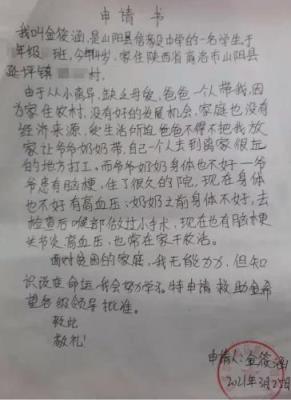 申请书
我叫金筱涵,是山阳县 中学的一名学生于
年级 班,今年14岁,家住陕西省商洛市山阳县
延坪镇 村。
由于从小离异,缺乏母爱,爸爸一个人带我,因
为家住农村,没有好的发展机会,家庭也没有
经济来源,受生活所迫爸爸不得不把我放
家让爷爷奶奶带,自己一个人去到离家很远
的地方打工,而爷爷奶奶身体也不好一爷
爷患有脑梗,住了很久的院,现在身体
也不好有高血压;奶奶之前身体不好,去
检查后喉部做过小手术,现在也有脑梗
关节炎高血压,也常在家干农活。
面对贫困的家庭,我无能力力,但知
识改变命运,我会努力学习。特申请救助金希
望各级领导批准。
致此
敬礼!
申请人:金筱涵
2021年3月25日